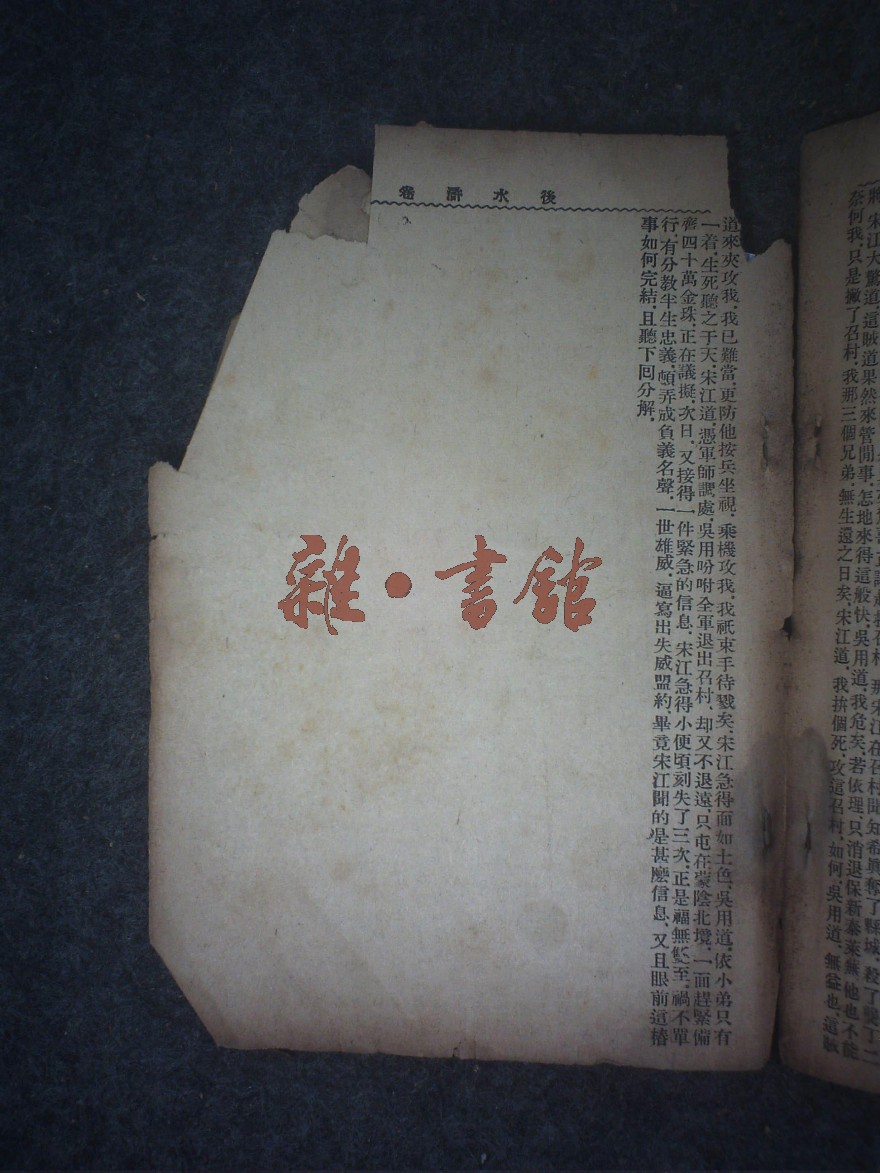 將、宋江大驚道、這賊道果然來管閒事、怎地來得這般快、吳用道、我危矣、若依理、只消退保新泰萊蕪、他也不能
奈何我、只是撇了召村、我那三個兄弟、無生還之日矣、宋江道、我拚個死、攻這召村、如何、吳用道、無益也、這賊
後水滸卷
道來夾攻我、我已難當、更防他按兵坐視、乘機攻我、我祇束手待戮矣、宋江急得面如土色、吳用道、依小弟只有
一着、生死聽之于天、宋江道、憑軍師調處、吳用吩咐全軍退出召村、却又不退遠、只屯在蒙陰北境、一面趕緊備
齊四十萬金珠、正在議擬、次日、又接得一件緊急的信息、宋江急得小便頃刻失了三次、正是福無雙至、禍不單
行、有分教半生忠義、頓弄成負義名聲、一世雄威、逼寫出失威盟約、畢竟宋江聞的是甚麼信息、又且眼前這樁
事、如何完結、且聽下回分解、
雜·書館